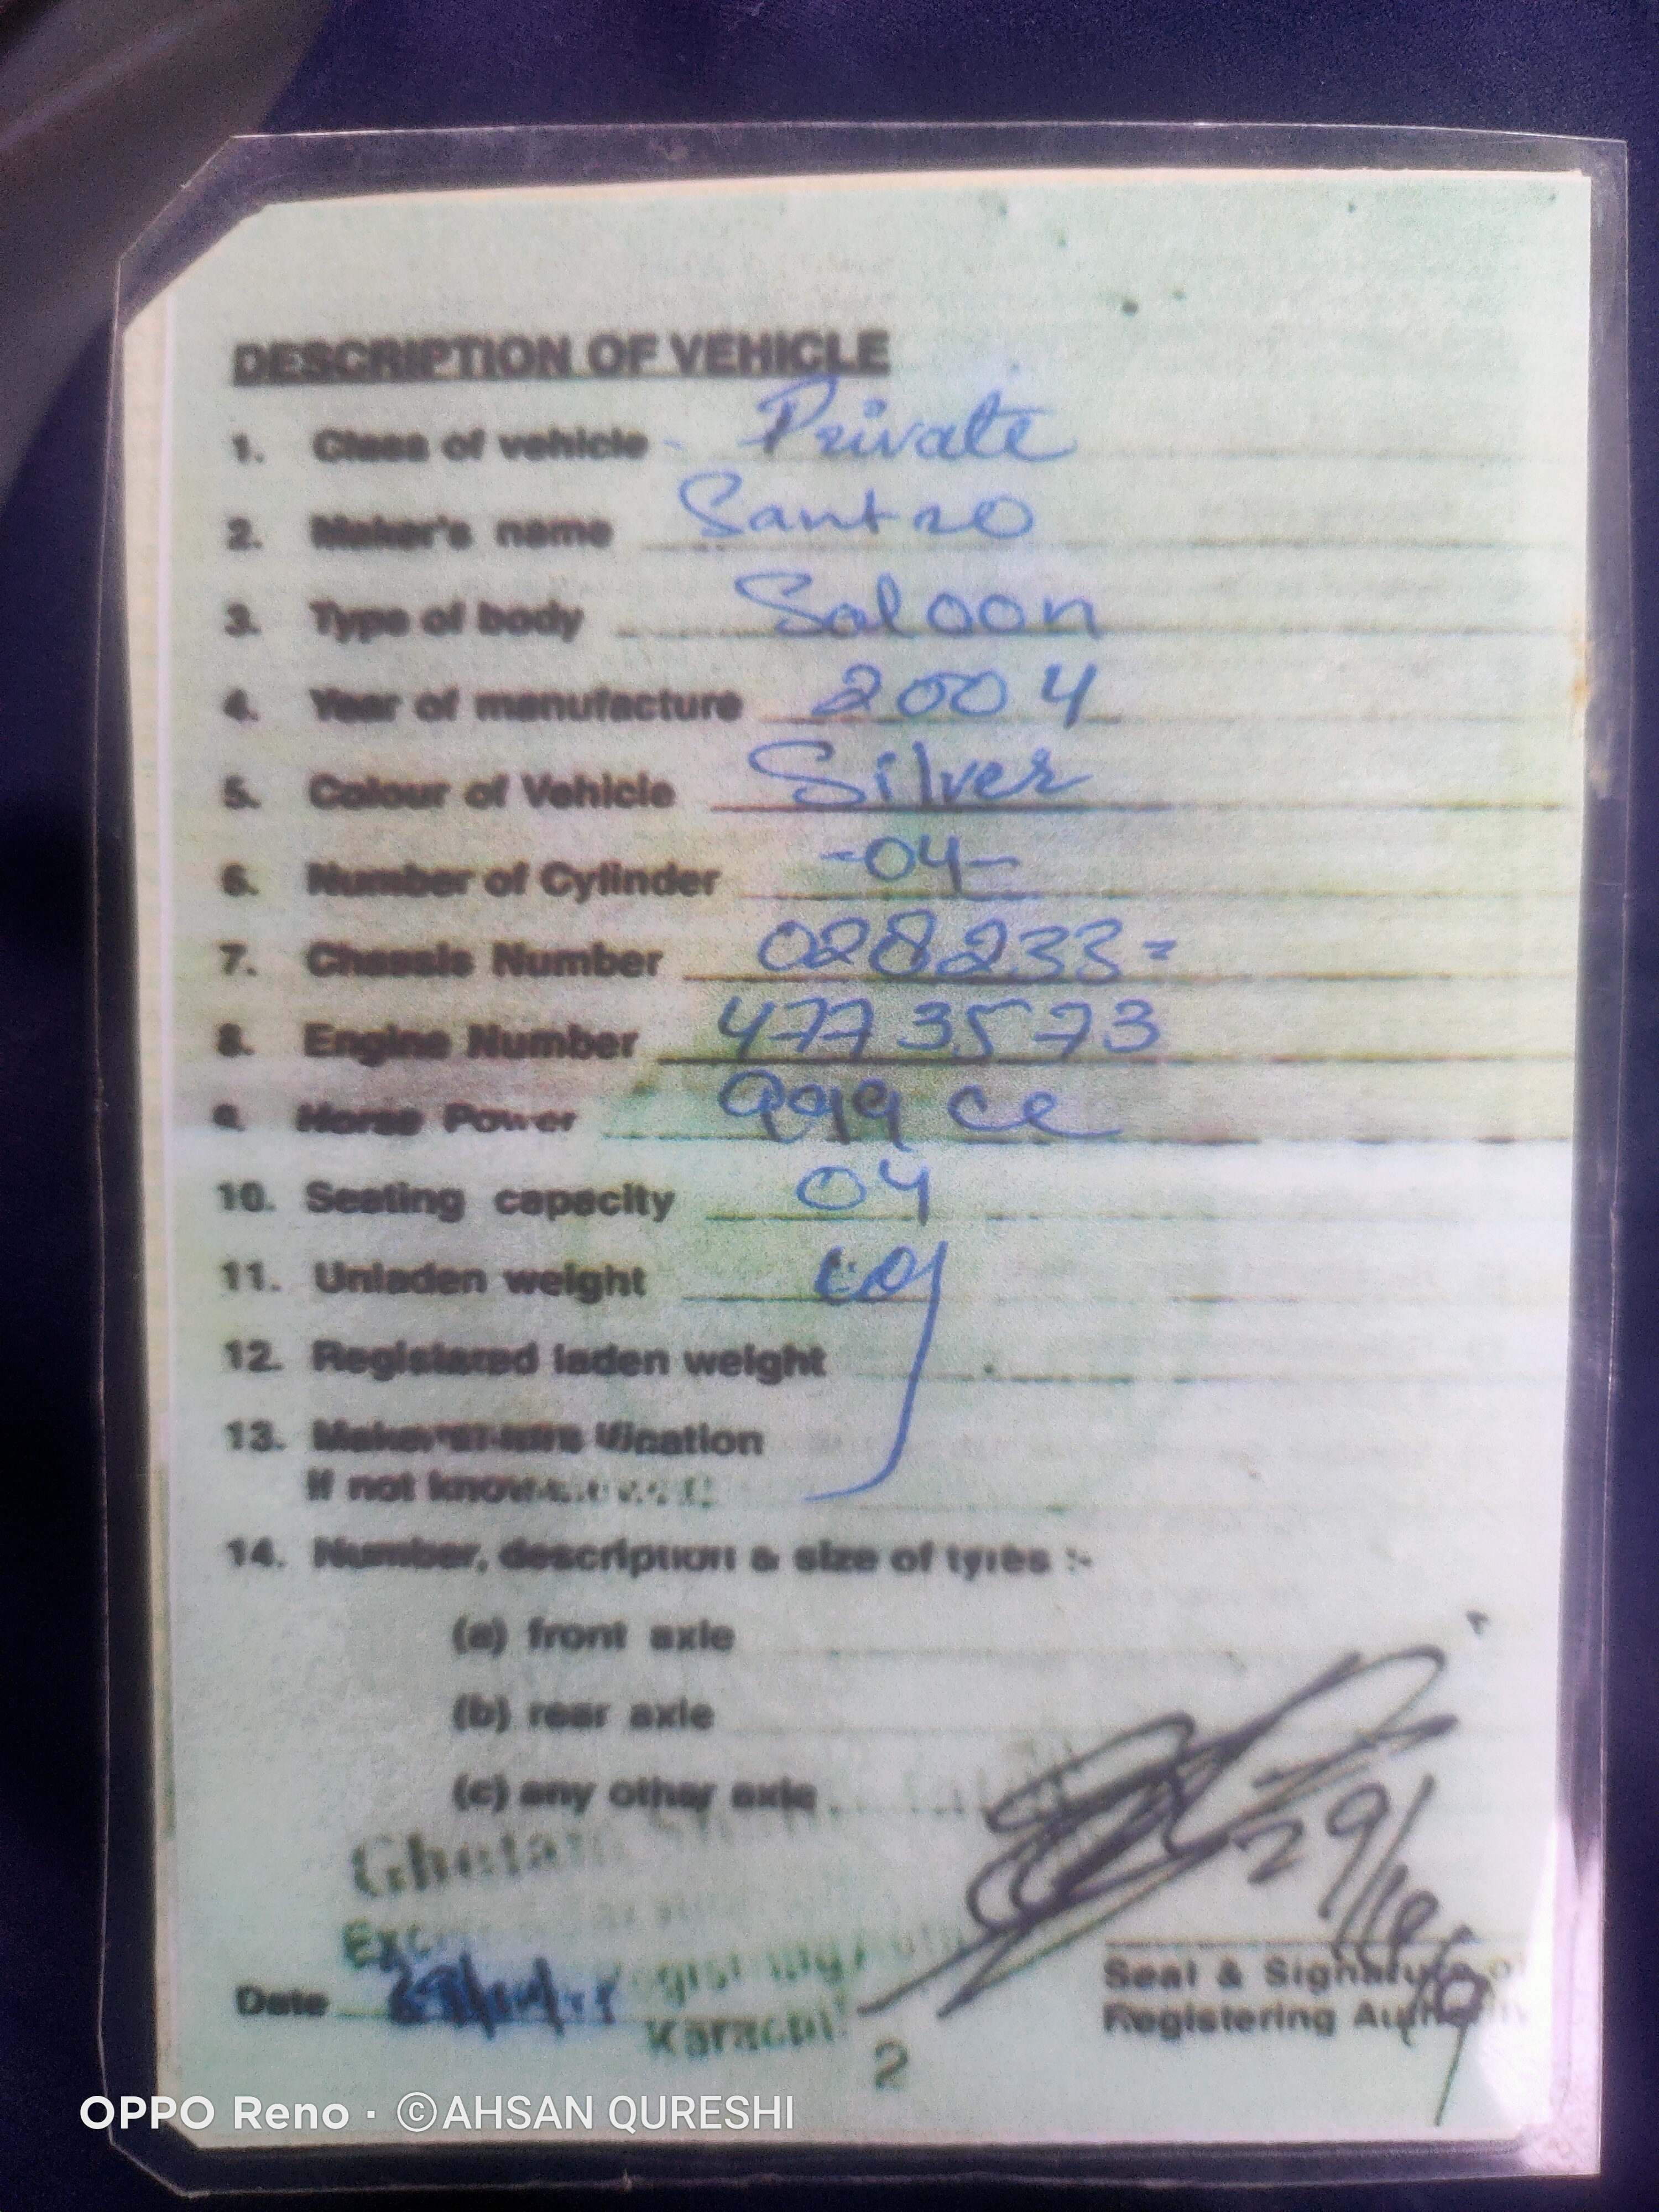 DESCRIPTION OF VEHICLE
1. Class of vehicle - Private
2. Maker's name Santro
3. Type of body Saloon
4. Year of manufacture 2004
5. Colour of Vehicle Silver
6. Number of Cylinder -04-
7. Chassis Number 028233=
8. Engine Number 4773573
9. Horse Power 999 cc
10. Seating capacity 04
11. Unladen weight
12. Registered laden weight
13.
If not
14. Number, description & size of tyres :-
(a) front axle
(b) rear axle
(c) any other axle
29/
Date
Karachi
Seal & Signature
Registering
2
OPPO Reno · ©AHSAN QURESHI